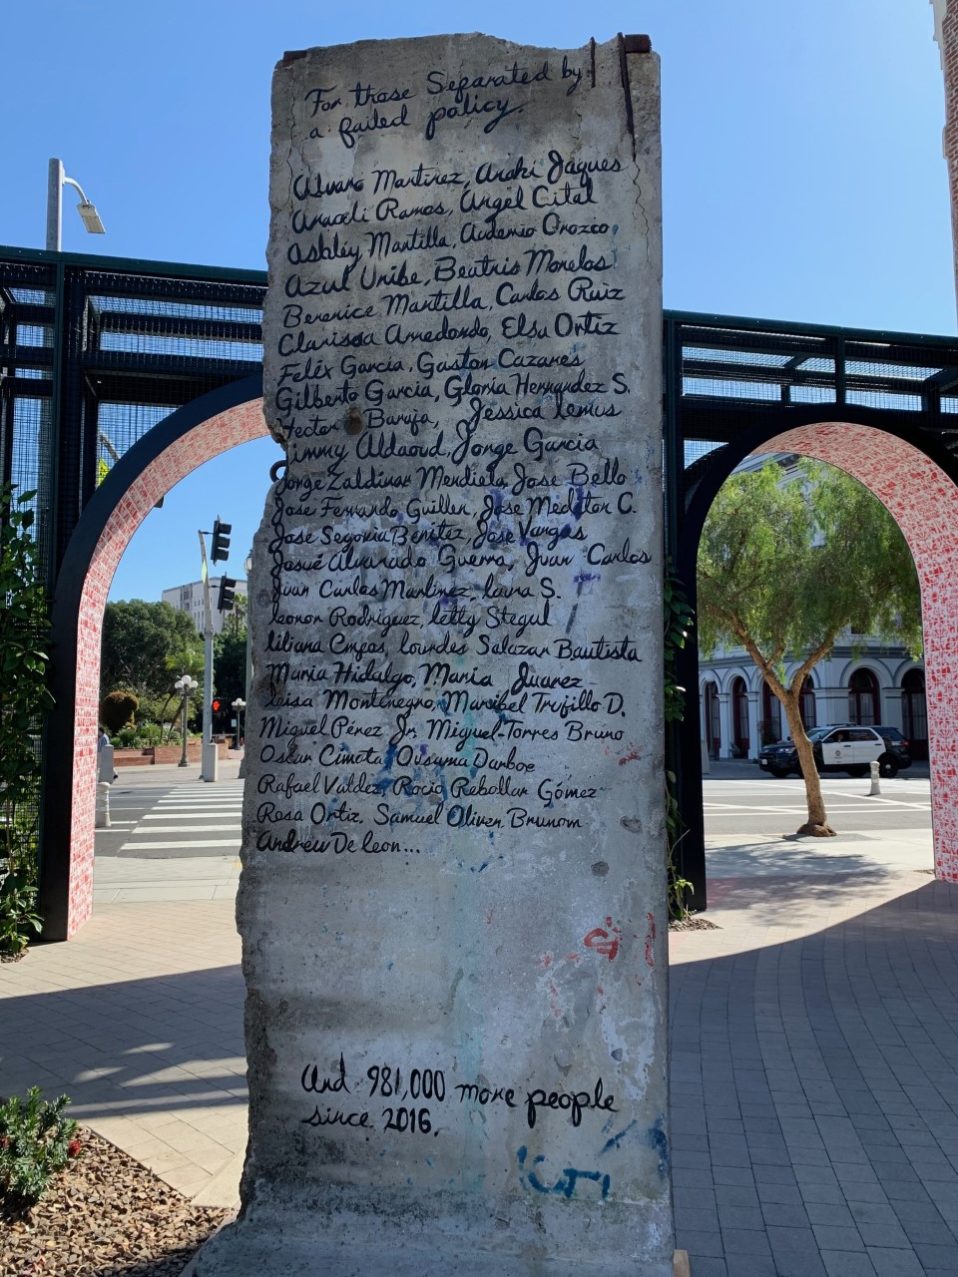 For those Separated by
a failed policy.
Alvaro Martinez, Arahi Jaques
Araceli Ramos, Angel Cital
Ashley Mantilla, Audemio Orozco,
Azul Uribe, Beatris Morelos
Berenice Mantilla, Carlos Ruiz
Clarissa Arredondo, Elsa Ortiz
Feléx Garcia, Gaston Cazares
Gilberto Garcia, Gloria Hernandez S.
Hector Baraja, Jessica Lemus
Jimmy Aldaoud, Jorge Garcia
Jorge Zaldivar Mendieta, Jose Bello
Jose Fernando Guillen, Jose C.
Jose Segovia Benitez, Jose Vargas
Josué Alvarado Guerra, Juan Carlos
Juan Carlos Martinez, Laura S.
Leonor Rodriguez, Letty Stegal
Liliana Lourdes Salazar Bautista
Maria Hidalgo, Maria Juarez
Laisa Montenegro, Maribel Trujillo D.
Miguel Pérez Jr. Miguel-Torres Bruno
Oscar Cimota, Ousuma Darboe
Rafael Valdez, Rocio Rebollar Gómez
Rosa Ortiz, Samuel Oliver, Brunom
Andrew De leon...
And 981,000 more people
since 2016.